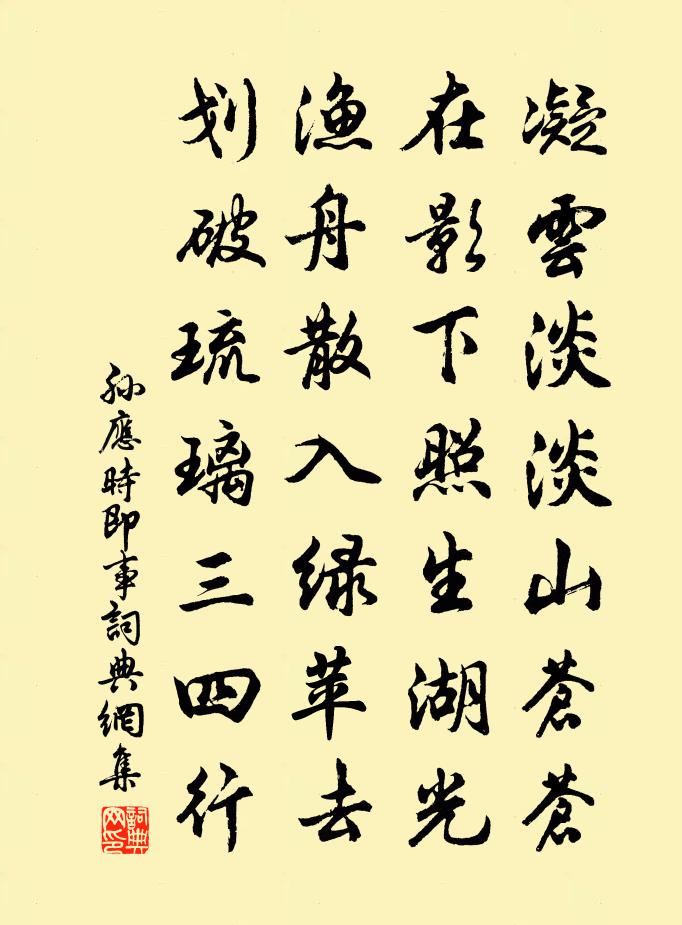 凝雲淡淡山蒼蒼
在影下照生湖光
漁舟散入绿苹去
划破琉璃三四行
孙應時即事詞典網集
詞典网印